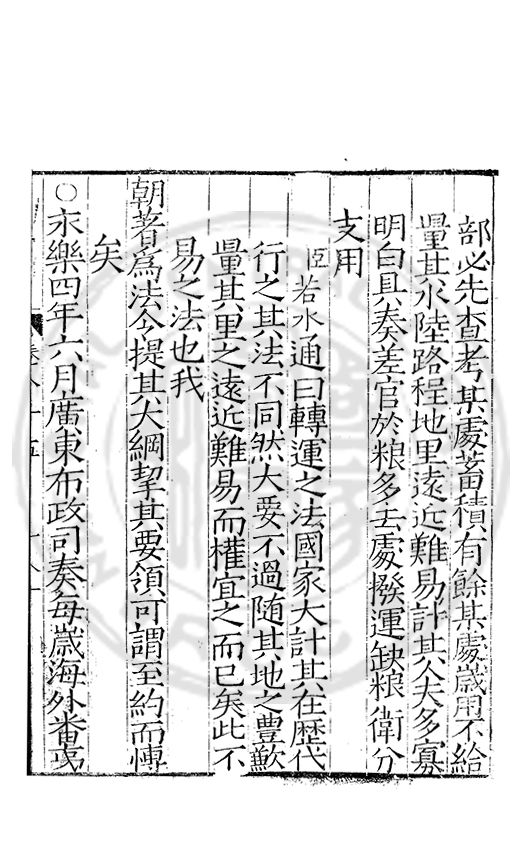 部必先查考某處蓄積有餘某處歲用不給
量其水陸路程地里遠近難易計其久夫多寡
明白具奏差官於粮多去處撥運缺粮衛分
支用
臣若水通曰轉運之法國家大計其在歷代
行之其法不同然大要不過随其地之豊歉
量其里之遠近難易而權宜之而已矣此不
易之法也我
朝著爲法令提其大綱挈其要領可謂至約而愽
矣
○永樂四年六月廣東布政司奏每歲海外畨夷
卷八十五